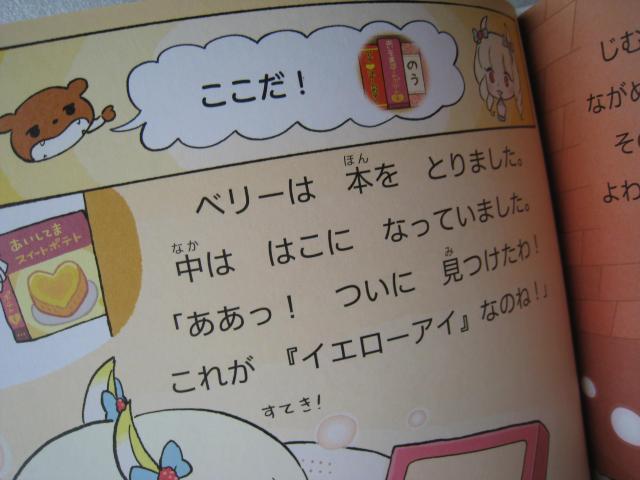 ここだ！
あいしてま
のう
ベリーは 本を とりました。
ほん
中は はこに なっていました。
なか
「ああっ！ ついに 見つけたわ！
み
これが 『イエローアイ』なのね！」
すてき！
あいしてま
スイートポテト
じむ
ながめ
その
よわ